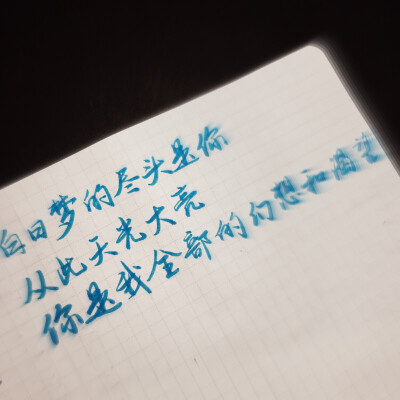 白日梦的尽头是你
从此天光大亮
你是我全部的幻想和